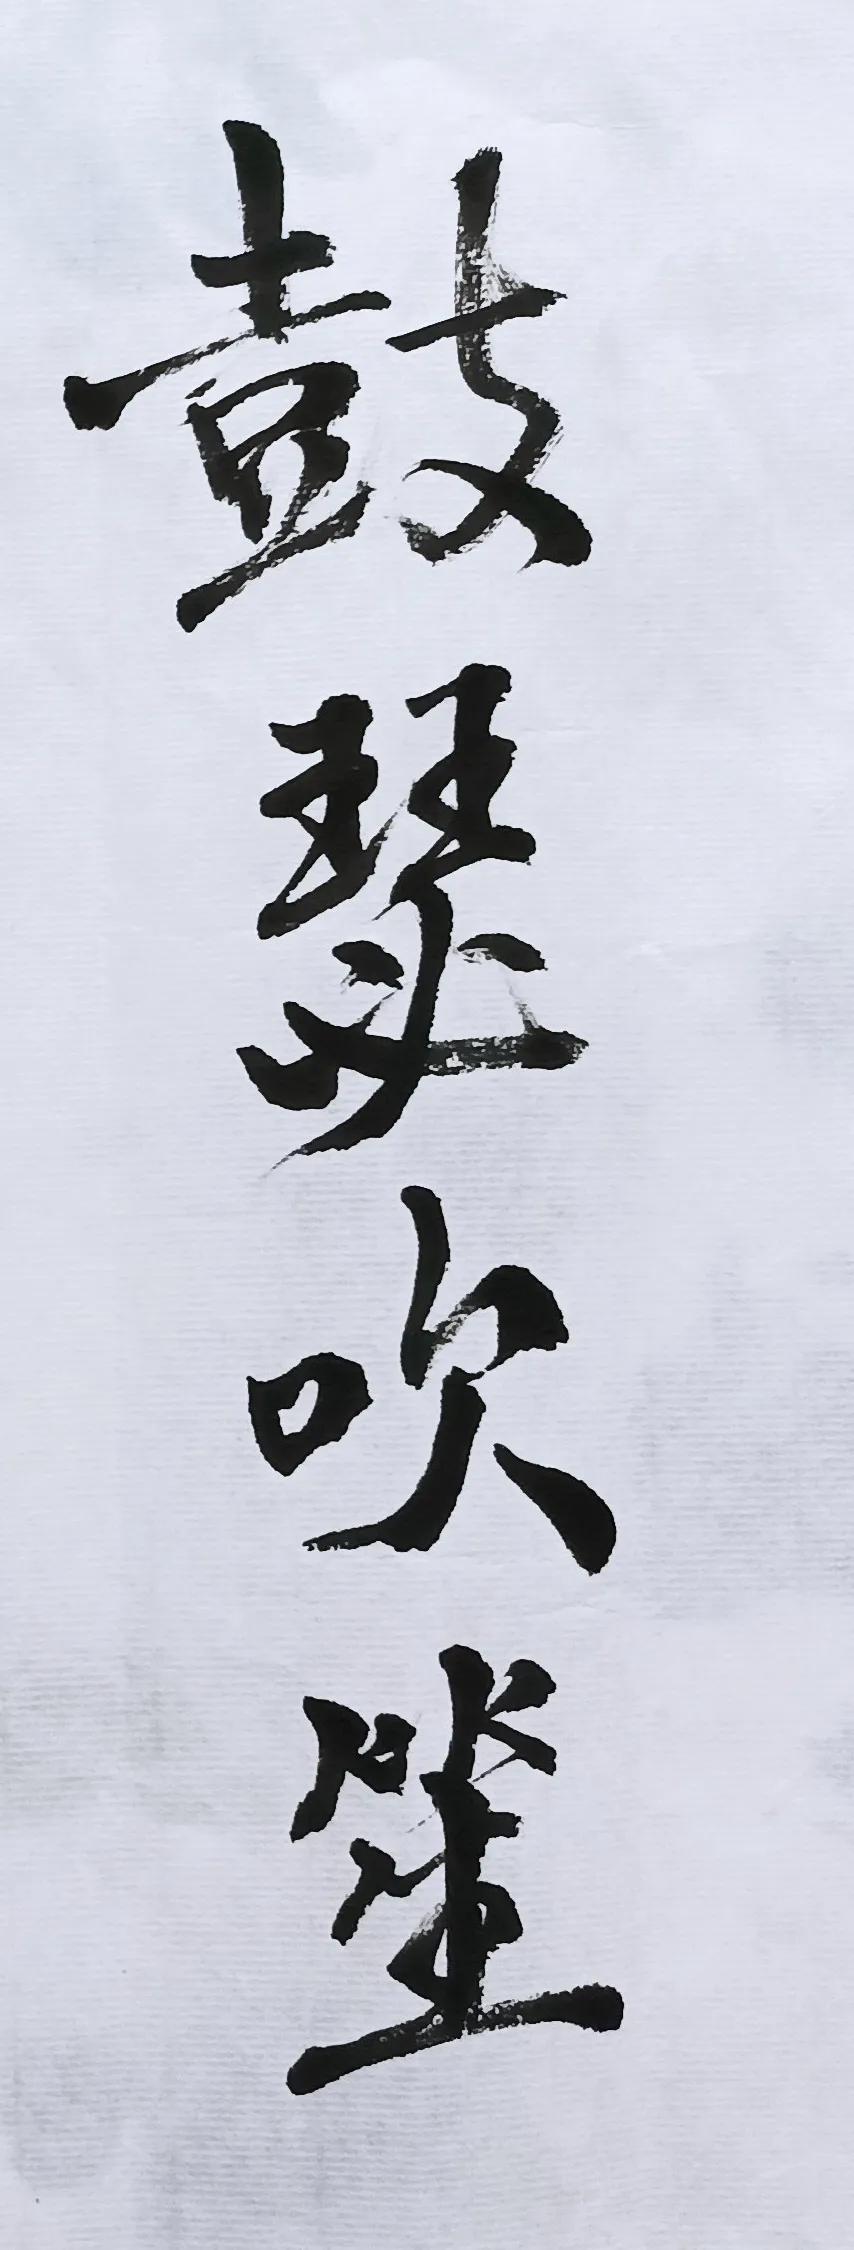 鼓瑟吹笙